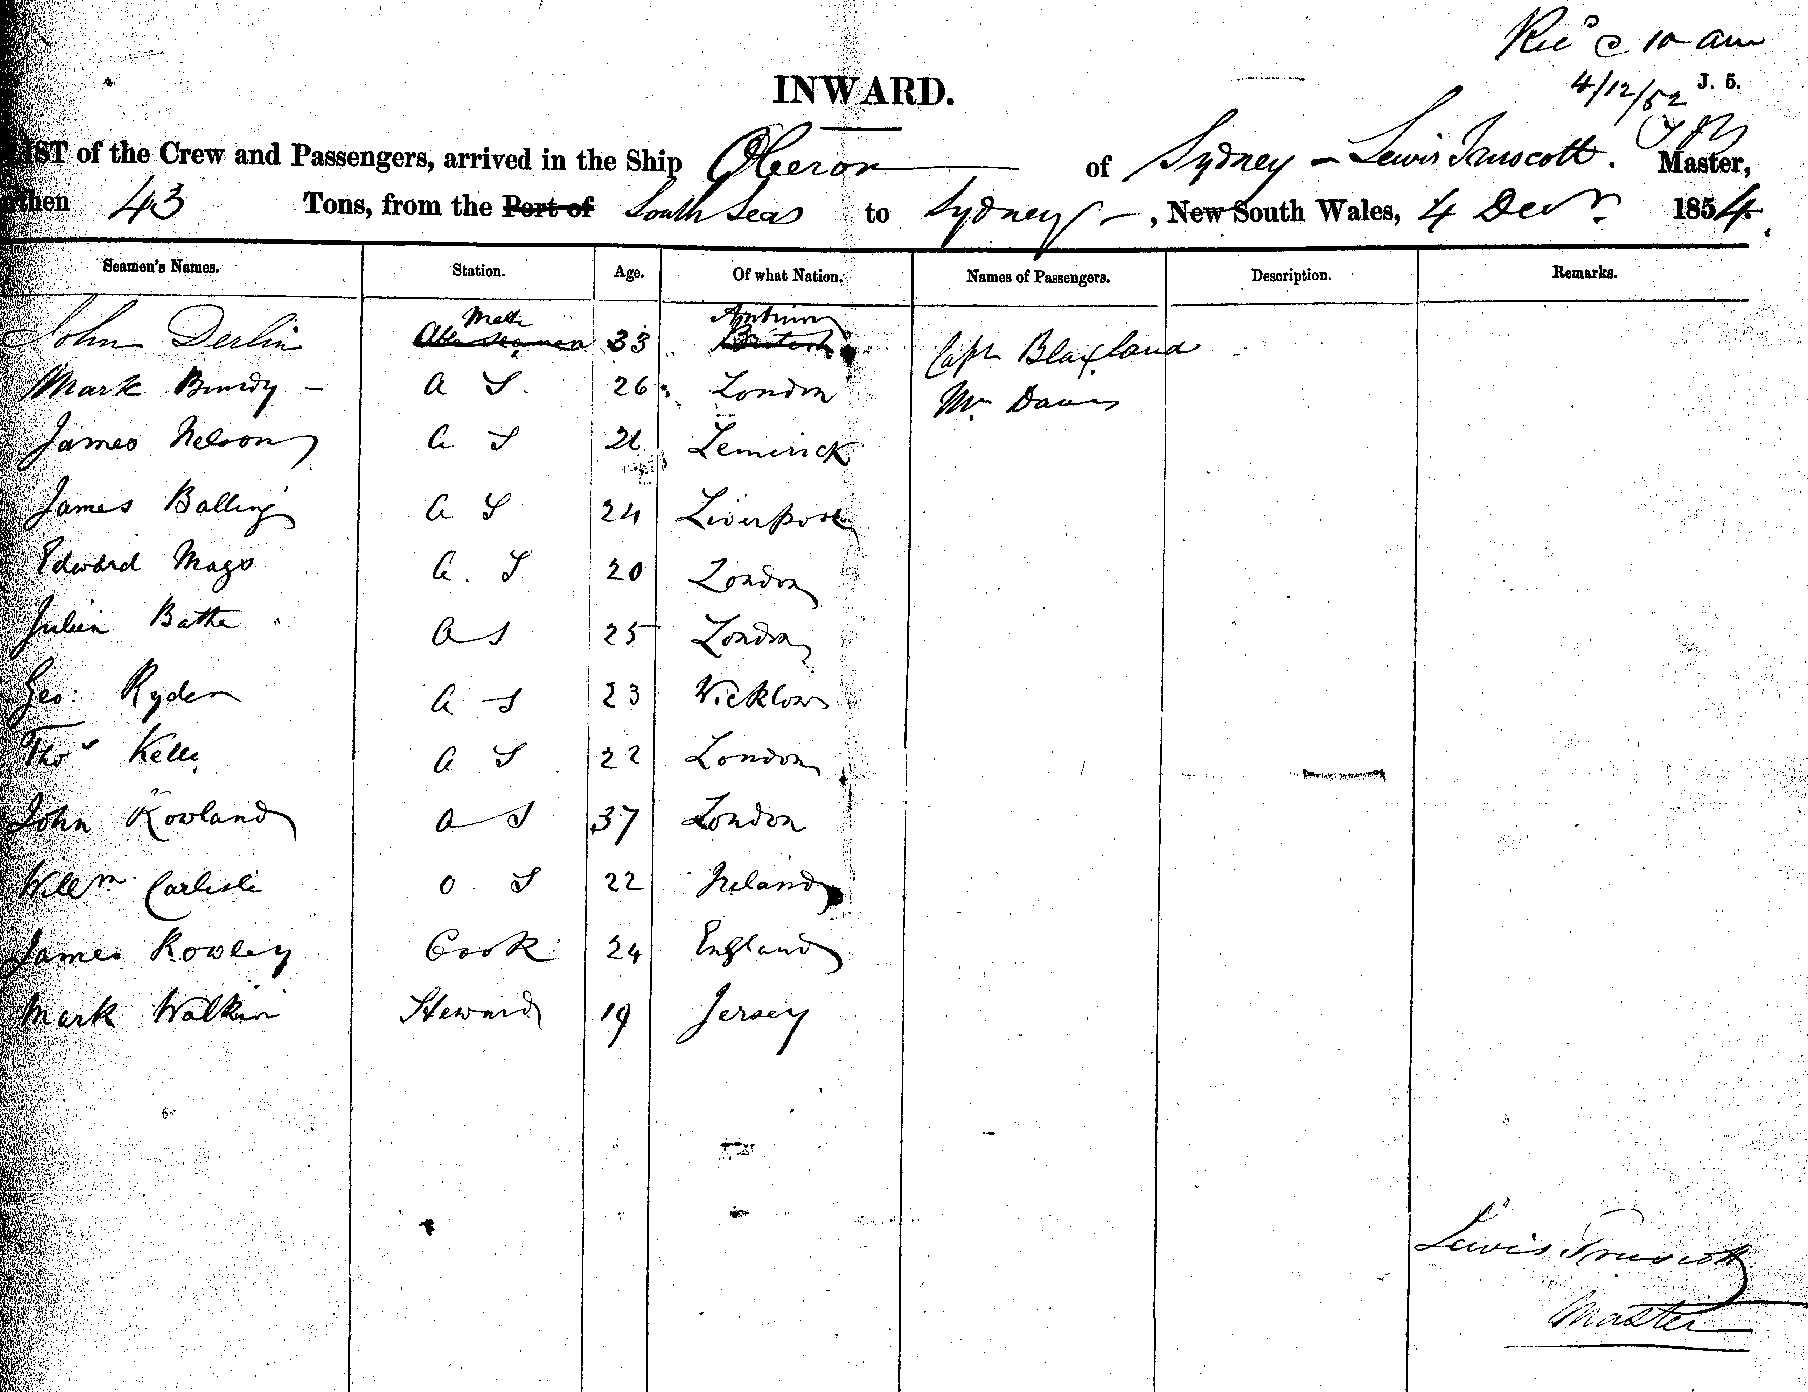 Recd @ 10 am
4/12/52 J. 5.
INWARD.
LIST of the Crew and Passengers, arrived in the Ship Oberon of Sydney - Lewis Truscott. Master,
Burthen 43 Tons, from the Port of South Seas to Sydney -, New South Wales, 4 Decr. 1854.
Seamen's Names. Station. Age. Of what Nation. Names of Passengers. Description. Remarks.
Mate
John Derlin Able Seaman 33 British Capt Blaxland
Mark A S. 26 London Mr Davis
James Nelson A S Lemerick
James Balling A S 24 Liverpool
Edward Mago A. S 20 London
Julien Bathe A S 25 London
Geo: Ryder A S 23 Wicklow
Thos Kelly A S 22 London
John Rowland A S 37 London
Willm Carlisle O S 22 Ireland
James Rowley Cook 24 England
Mark Walkin Steward 19 Jersey
Lewis Truscott
Master